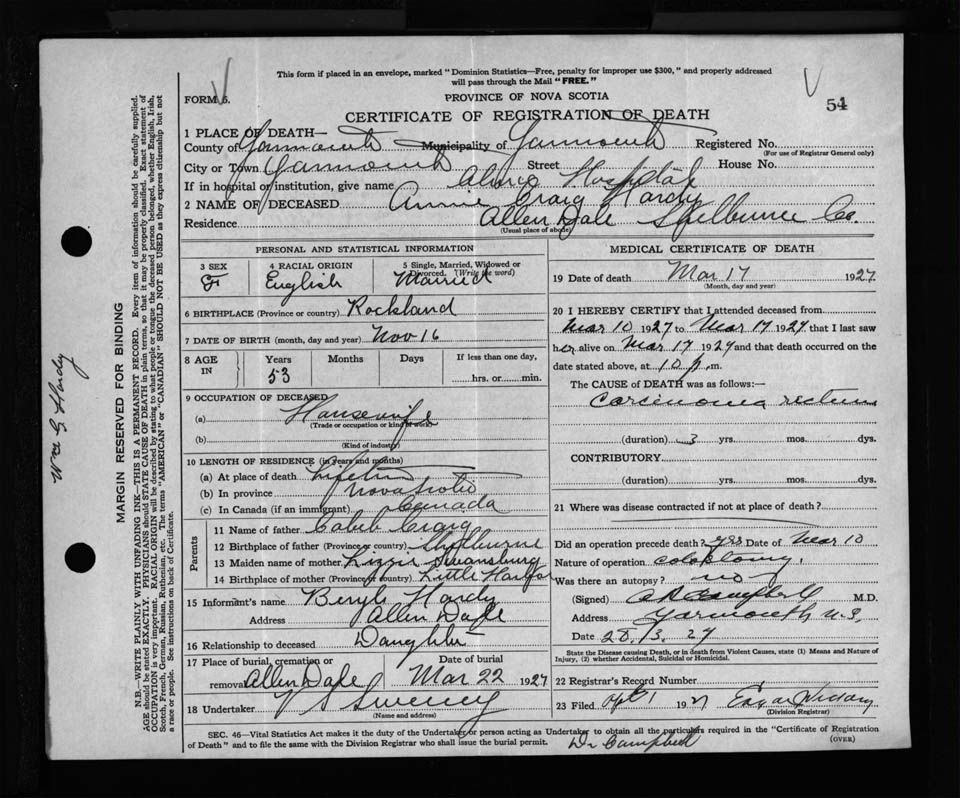 This form if placed in an envelope, marked "Dominion Statistics—Free, penalty for improper use $300," and properly addressed
will pass through the Mail "FREE."
54
FORM 6.
PROVINCE OF NOVA SCOTIA
CERTIFICATE OF REGISTRATION OF DEATH
1 PLACE OF DEATH—
County of Yarmouth Municipality of Yarmouth Registered No.
(For use of Registrar General only)
City or Town Yarmouth Street House No.
If in hospital or institution, give name Hospital
2 NAME OF DECEASED Annie Craig Hardy
Residence Allen Dale Shelburne Co.
(Usual place of abode)
PERSONAL AND STATISTICAL INFORMATION
3 SEX
F
4 RACIAL ORIGIN
English
5 Single, Married, Widowed or
Divorced. (Write the word)
Married
6 BIRTHPLACE (Province or country) Rockland
7 DATE OF BIRTH (month, day and year) Nov 16
8 AGE
IN
Years Months Days If less than one day,
53 hrs. or min.
9 OCCUPATION OF DECEASED
(a) Housewife
(Trade or occupation or kind of work)
(b)
(Kind of industry)
10 LENGTH OF RESIDENCE (in years and months)
(a) At place of death Lifetime
(b) In province Nova Scotia
(c) In Canada (if an immigrant) Canada
Parents
11 Name of father Caleb Craig
12 Birthplace of father (Province or country) Shelburne
13 Maiden name of mother Lizzie Swansburg
14 Birthplace of mother (Province or country) Little Harbor
15 Informant's name Beryl Hardy
Address Allen Dale
16 Relationship to deceased Daughter
17 Place of burial, cremation or Date of burial
removal Allen Dale Mar 22 1927
18 Undertaker V S Sweeney
(Name and address)
MEDICAL CERTIFICATE OF DEATH
19 Date of death Mar 17 1927
(Month, day and year)
20 I HEREBY CERTIFY that I attended deceased from
Mar 10 1927 to Mar 17 1927 that I last saw
her alive on Mar 17 1927 and that death occurred on the
date stated above, at 10 p.m.
The CAUSE of DEATH was as follows:—
Carcinoma rectum
(duration) 3 yrs. mos. dys.
CONTRIBUTORY
(duration) yrs. mos. dys.
21 Where was disease contracted if not at place of death?
Did an operation precede death? yes Date of Mar 10
Nature of operation colostomy.
Was there an autopsy? no
(Signed) Campbell M.D.
Address Yarmouth N.S.
Date 20, /3, 27
State the Disease causing Death, or in death from Violent Causes, state (1) Means and Nature of
Injury, (2) whether Accidental, Suicidal or Homicidal.
22 Registrar's Record Number
23 Filed Apl 1 1927
(Division Registrar)
SEC. 46—Vital Statistics Act makes it the duty of the Undertaker or person acting as Undertaker to obtain all the particulars required in the "Certificate of Registration
of Death" and to file the same with the Division Registrar who shall issue the burial permit.
Dr Campbell
(OVER)
Wm G Hardy
MARGIN RESERVED FOR BINDING
N.B.—WRITE PLAINLY WITH UNFADING INK—THIS IS A PERMANENT RECORD. Every item of information should be carefully supplied.
AGE should be stated EXACTLY. PHYSICIANS should STATE CAUSE OF DEATH in plain terms, so that it may be properly classified. Exact statement of
OCCUPATION is very important. RACIAL ORIGIN will be described by stating to what people or tongue the deceased person belonged, whether English, Irish,
Scotch, French, German, Russian, Ruthenian, etc. The terms "AMERICAN" or "CANADIAN" SHOULD NOT BE USED as they express citizenship but not
a race or people. See instructions on back of Certificate.